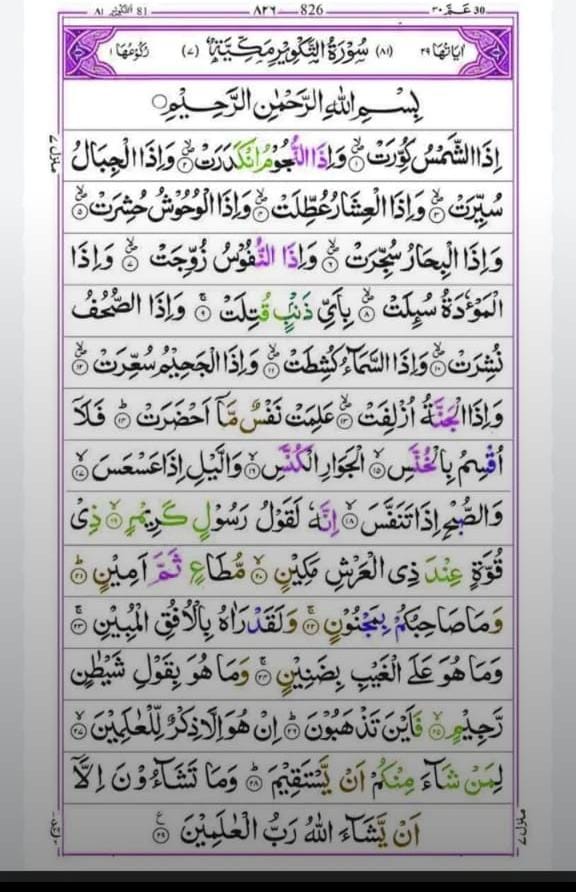 ٨١ التكوير ٨١ ٨٢٦ 826 عم ٣٠ 30
اٰيَاتُهَا ٢٩ (٨١) سُوْرَةُ التَّكْوِيْرِ مَكِّيَّةٌ (٧) رُكُوْعُهَا ١
بِسْمِ اللهِ الرَّحْمٰنِ الرَّحِيْمِ
اِذَا الشَّمْسُ كُوِّرَتْ ۙ﴿١﴾ وَاِذَا النُّجُوْمُ انْكَدَرَتْ ۙ﴿٢﴾ وَاِذَا الْجِبَالُ
سُيِّرَتْ ۙ﴿٣﴾ وَاِذَا الْعِشَارُ عُطِّلَتْ ۙ﴿٤﴾ وَاِذَا الْوُحُوْشُ حُشِرَتْ ۙ﴿٥﴾
وَاِذَا الْبِحَارُ سُجِّرَتْ ۙ﴿٦﴾ وَاِذَا النُّفُوْسُ زُوِّجَتْ ۙ﴿٧﴾ وَاِذَا
الْمَوْءٗدَةُ سُىِٕلَتْ ۙ﴿٨﴾ بِاَىِّ ذَنْۢبٍ قُتِلَتْ ۚ﴿٩﴾ وَاِذَا الصُّحُفُ
نُشِرَتْ ۙ﴿١٠﴾ وَاِذَا السَّمَآءُ كُشِطَتْ ۙ﴿١١﴾ وَاِذَا الْجَحِيْمُ سُعِّرَتْ ۙ﴿١٢﴾
وَاِذَا الْجَنَّةُ اُزْلِفَتْ ۙ﴿١٣﴾ عَلِمَتْ نَفْسٌ مَّآ اَحْضَرَتْ ؕ﴿١٤﴾ فَلَآ
اُقْسِمُ بِالْخُنَّسِ ۙ﴿١٥﴾ الْجَوَارِ الْكُنَّسِ ۙ﴿١٦﴾ وَالَّيْلِ اِذَا عَسْعَسَ ۙ﴿١٧﴾
وَالصُّبْحِ اِذَا تَنَفَّسَ ۙ﴿١٨﴾ اِنَّهٗ لَقَوْلُ رَسُوْلٍ كَرِيْمٍ ۙ﴿١٩﴾ ذِىْ
قُوَّةٍ عِنْدَ ذِى الْعَرْشِ مَكِيْنٍ ۙ﴿٢٠﴾ مُّطَاعٍ ثَمَّ اَمِيْنٍ ؕ﴿٢١﴾
وَمَا صَاحِبُكُمْ بِمَجْنُوْنٍ ۚ﴿٢٢﴾ وَلَقَدْ رَاٰهُ بِالْاُفُقِ الْمُبِيْنِ ۚ﴿٢٣﴾
وَمَا هُوَ عَلَى الْغَيْبِ بِضَنِيْنٍ ۚ﴿٢٤﴾ وَمَا هُوَ بِقَوْلِ شَيْطٰنٍ
رَّجِيْمٍ ۙ﴿٢٥﴾ فَاَيْنَ تَذْهَبُوْنَ ؕ﴿٢٦﴾ اِنْ هُوَ اِلَّا ذِكْرٌ لِّلْعٰلَمِيْنَ ۙ﴿٢٧﴾
لِمَنْ شَآءَ مِنْكُمْ اَنْ يَّسْتَقِيْمَ ؕ﴿٢٨﴾ وَمَا تَشَآءُوْنَ اِلَّآ
اَنْ يَّشَآءَ اللهُ رَبُّ الْعٰلَمِيْنَ ۧ﴿٢٩﴾